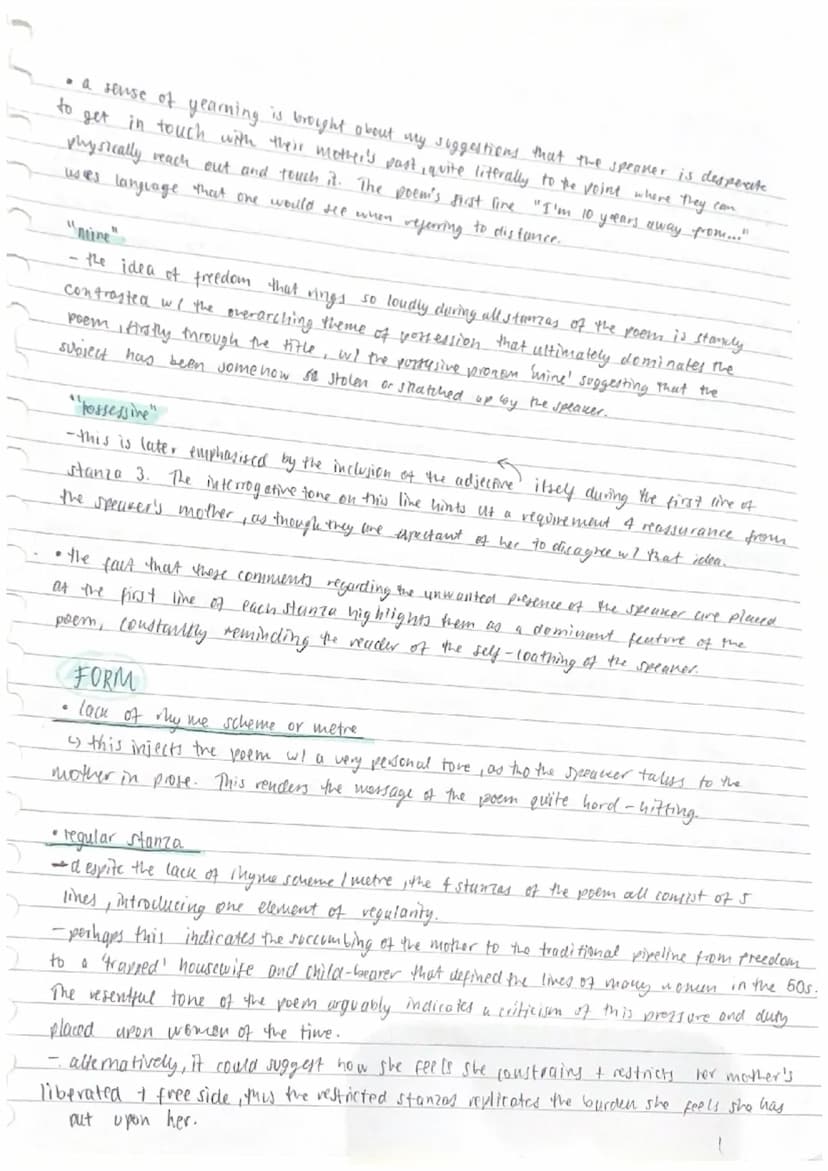 • a sense of yearning is brought about my suggestions that the speaker is desperate
to get in touch with their mother's past, quite literally to the point where they can
physically reach out and touch it. The poem's first line "I'm 10 years away from..."
uses language that one would see when referring to distance.
"mine"
- the idea of freedom that rings so loudly during all stanzas of the poem is starkly
contrasted w/ the overarching theme of possession that ultimately dominates the
poem, firstly through the title, w/ the possessive pronoun 'mine' suggesting that the
subject has been somehow stolen or snatched up by the speaker.
"possessive"
- this is later emphasised by the inclusion of the adjective itself during the first line of
stanza 3. The interrogative tone on this line hints at a requirement 4 reassurance from
the speaker's mother, as though they are expectant of her to disagree w/ that idea.
• the fact that these comments regarding the unwanted presence of the speaker are placed
at the first line of each stanza highlights them as a dominant feature of the
poem, constantly reminding the reader of the self-loathing of the speaker.
FORM
• lack of rhyme scheme or metre
↳ this injects the poem w/ a very personal tone, as tho the speaker talks to the
mother in prose. This renders the message of the poem quite hard-hitting.
• regular stanza
→ despite the lack of rhyme scheme/metre, the 4 stanzas of the poem all consist of 5
lines, introducing one element of regularity.
- perhaps this indicates the succumbing of the mother to the traditional pipeline from freedom
to a 'trapped' housewife and child-bearer that defined the lives of many women in the 50s.
The resentful tone of the poem arguably indicates a criticism of this pressure and duty
placed upon women of the time.
- alternatively, it could suggest how she feels she constrains + restricts her mother's
liberated + free side, thus the restricted stanzas replicates the burden she feels she has
put upon her.